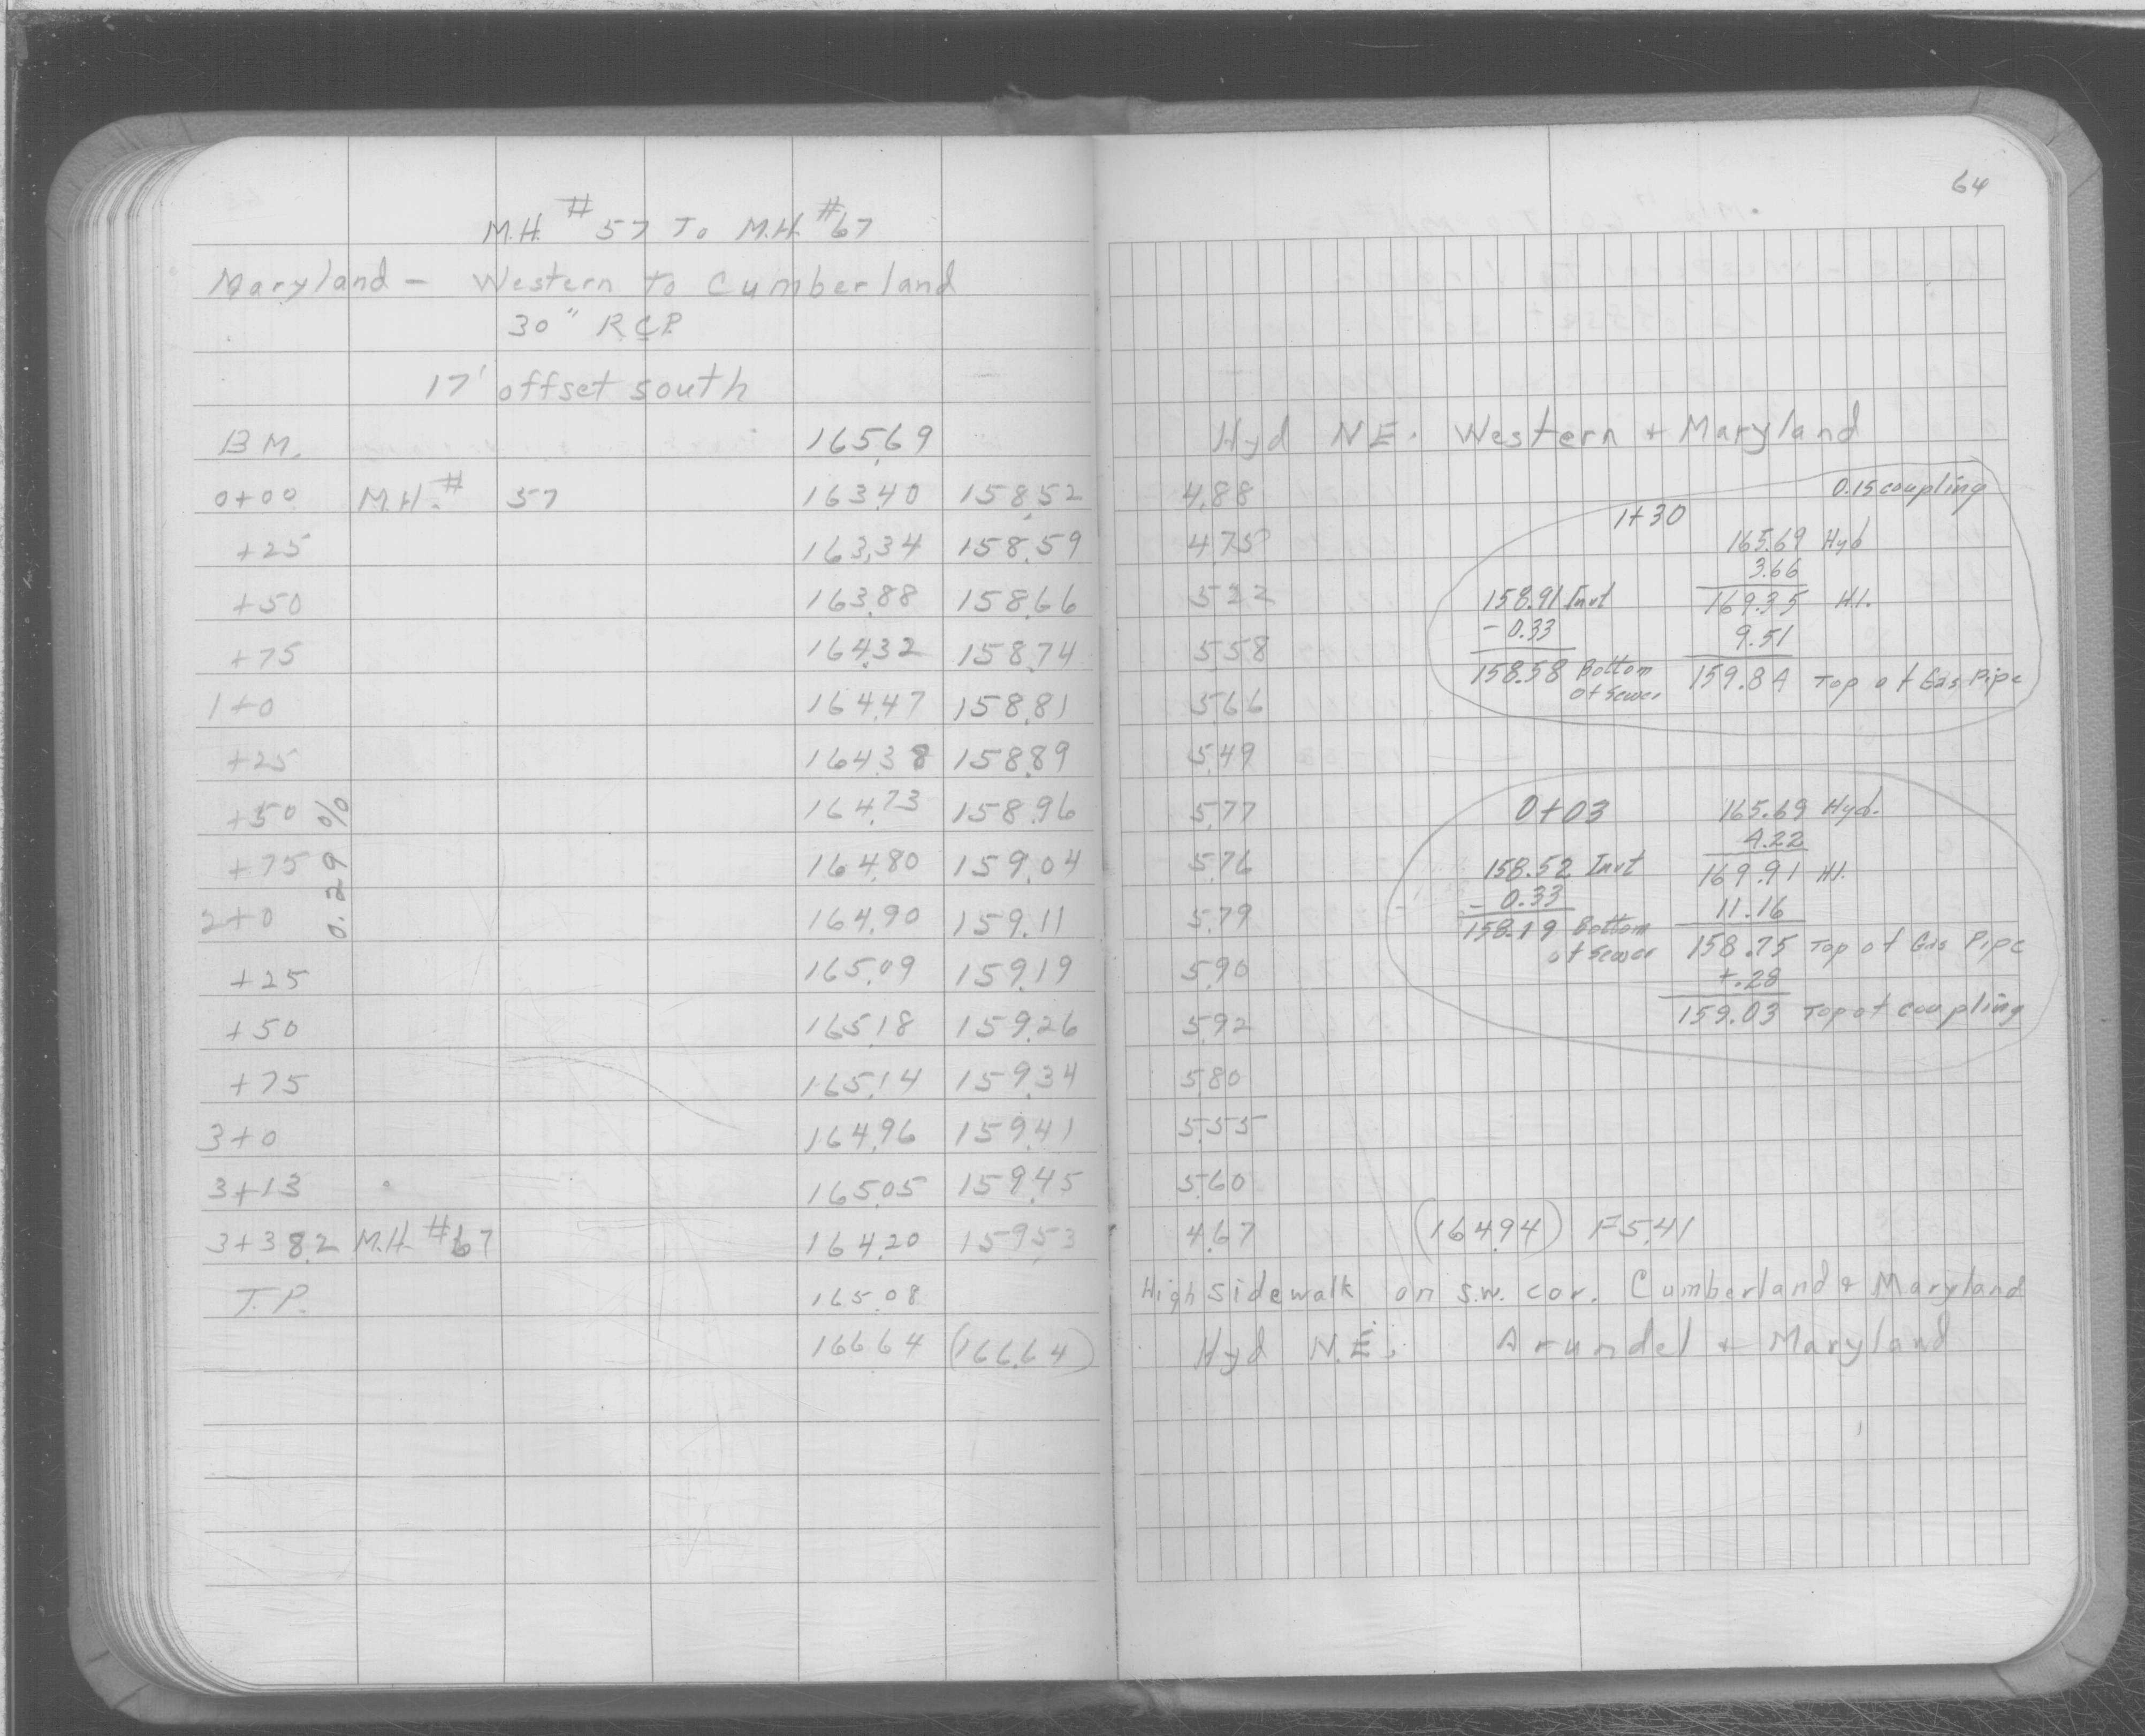 M.H. #57 To M.H. #67
Maryland - Western to Cumberland
30" RCP
17' offset south
B M. 165.69
0+00 M.H. # 57 163.40 158.52
+25 163.34 158.59
+50 163.88 158.66
+75 164.32 158.74
1+0 164.47 158.81
+25 164.38 158.89
+50 164.73 158.96
+75 164.80 159.04
2+0 164.90 159.11
0.29 %
+25 165.09 159.19
+50 165.18 159.26
+75 165.14 159.34
3+0 164.96 159.41
3+13 165.05 159.45
3+38.2 M.H. #67 164.20 159.53
T.P. 165.08
166.64 (166.64)
64
Hyd N.E. Western + Maryland
4.88
4.75
5.22
5.58
5.66
5.49
5.77
5.76
5.79
5.90
5.92
5.80
5.55
5.60
4.67 (164.94) F 5.41
High sidewalk on s.w. cor. Cumberland & Maryland
Hyd N.E. Arundel + Maryland
0.15 coupling
1+30
158.91 Invt
- 0.33
158.58 Bottom
of sewer
165.69 Hyd
3.66
169.35 H.I.
9.51
159.84 Top of Gas Pipe
0+03
158.52 Invt
- 0.33
158.19 Bottom
of sewer
165.69 Hyd.
4.22
169.91 HI.
11.16
158.75 Top of Gas Pipe
+.28
159.03 Top of coupling